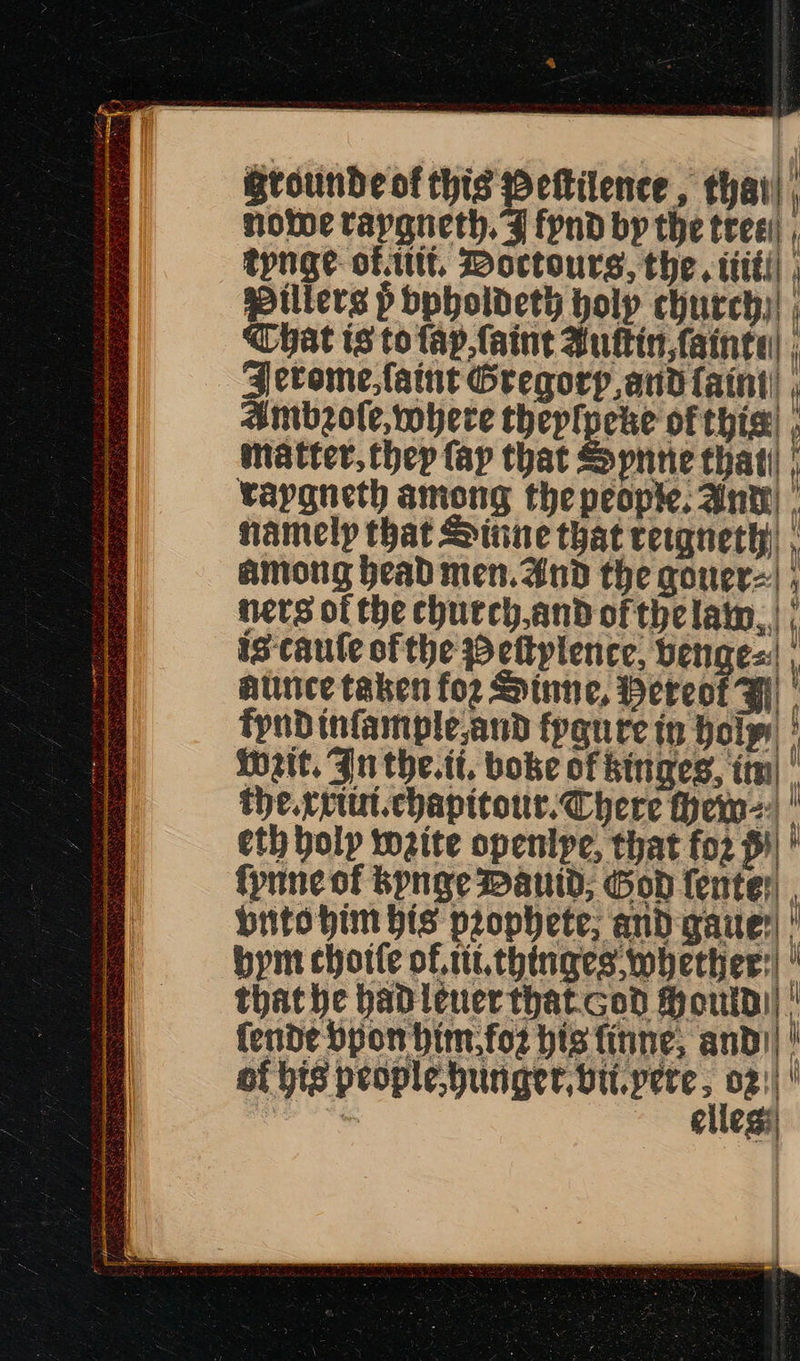 grounde of this Pestilence, that
nowe raygneth. I fynd by the trea
tynge of.iiii. Doctours, the.iiii.
Pillers þͭ vpholdeth holy church;
That is to say, saint Austin, sainte
Jerome, saint Gregory, and saint
Ambrose, where they speke of this
matter, they say that Synne that
raygneth among the people. And
namely that Sinne that reigneth
among head men. And the gouer=
ners of the church, and of the law,
is cause of the Pestylence, venge=
aunce taken for Sinne. Hereof I
fynd insample, and fygure in holy
writ. In the.ii. boke of kinges, in
the.xxiiii.chapitour. There shew=
eth holy write openlye, that for þͤ
synne of kynge Dauid, God sente
vnto him his prophete, and gaue
hym choise of.iii.thinges, whether
that he had leuer that God should
sende vpon him, for his sinne, and
of his people, hunger, vii. yere, or
elles